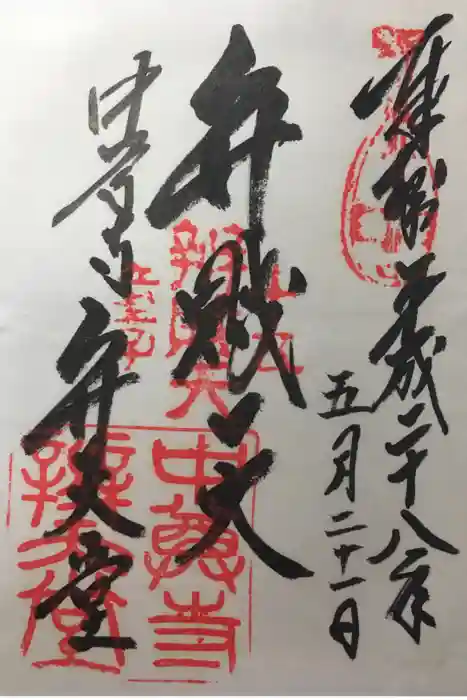 奉拝 平成二十八年
五月二十一日
弁財天
中尊寺 弁天堂
中尊寺
辨天堂